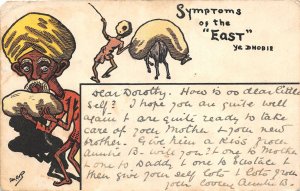 Symptoms
of the
"EAST"
Ye DHOBIE
Dear Dorothy. How is oo dear little
self? I hope you are quite well
again & are quite ready to take
care of your Mother & your new
brother. Give him a kiss from
Auntie B. will you. & one to Mother
& one to Daddy & one to Eustace &
then give your self lots & lots from
your loving Auntie B.